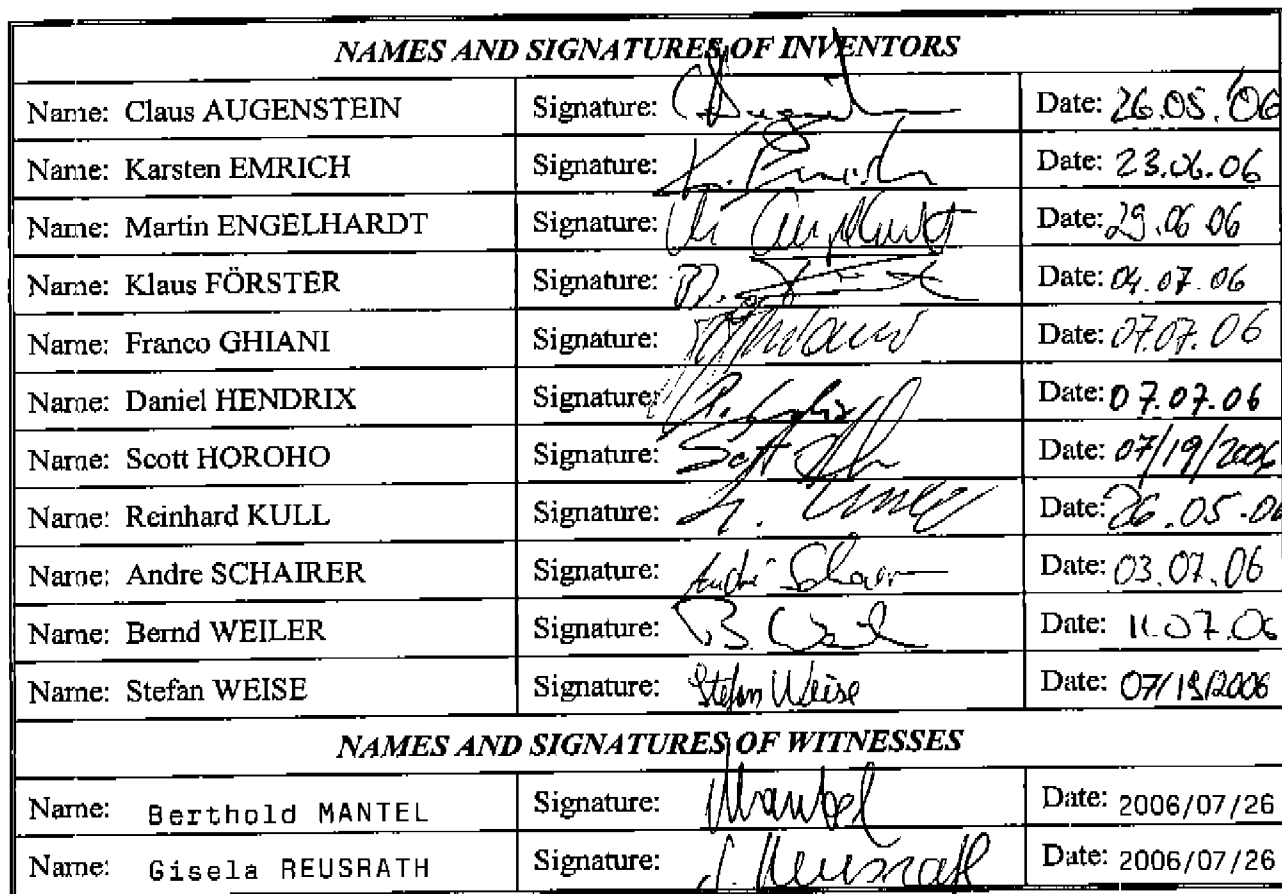 NAMES AND SIGNATURES OF INVENTORS
Name: Claus AUGENSTEIN Signature: Date: 26.05.06
Name: Karsten EMRICH Signature: Date: 23.06.06
Name: Martin ENGELHARDT Signature: Date: 29.06 06
Name: Klaus FÖRSTER Signature: Date: 04.07.06
Name: Franco GHIANI Signature: Date: 07.07.06
Name: Daniel HENDRIX Signature: Date: 07.07.06
Name: Scott HOROHO Signature: Scott Date: 07/19/2006
Name: Reinhard KULL Signature: Date: 26.05.06
Name: Andre SCHAIRER Signature: André Date: 03.07.06
Name: Bernd WEILER Signature: B. Date: 11.07.06
Name: Stefan WEISE Signature: Stefan Weise Date: 07/19/2006
NAMES AND SIGNATURES OF WITNESSES
Name: Berthold MANTEL Signature: Mantel Date: 2006/07/26
Name: Gisela REUSRATH Signature: Reusrath Date: 2006/07/26